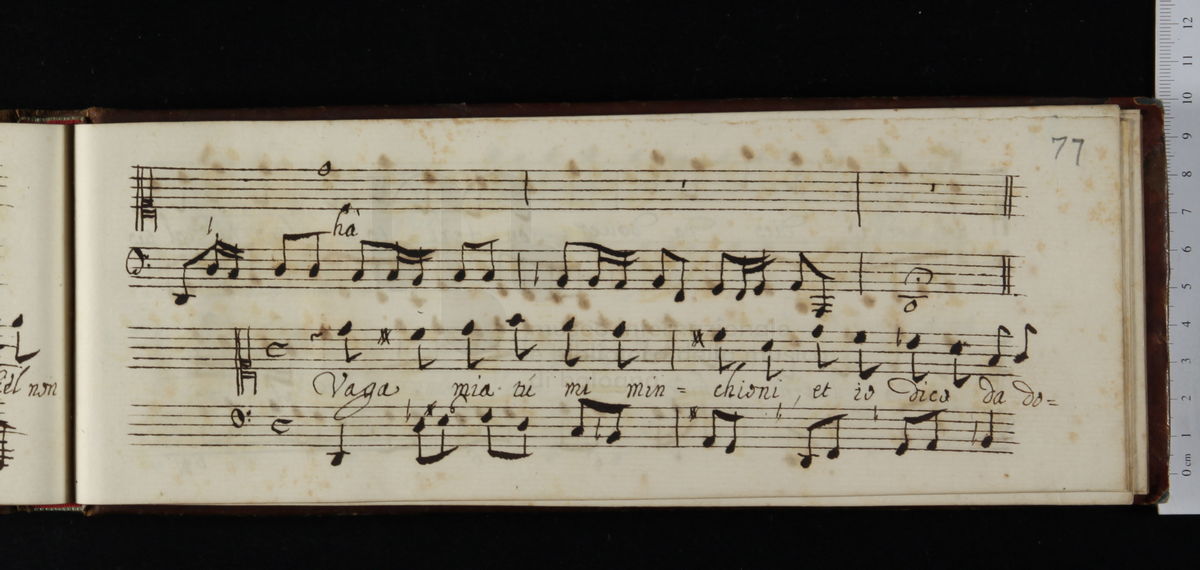 77
hà
non
Vaga mia tú mi min= chioni, et io dico da do=
12
11
10
9
8
7
6
5
4
3
2
1
0 cm